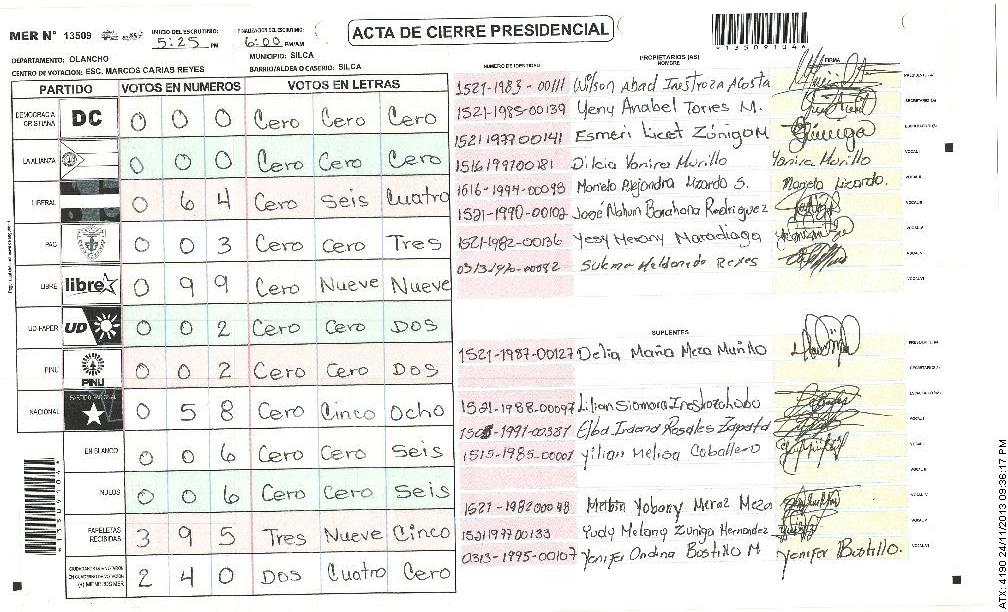 MER Nº 13509
INICIO DEL ESCRUTINIO: 5:25 PM
FINALIZACION DEL ESCRUTINIO: 6:00 PM/AM
ACTA DE CIERRE PRESIDENCIAL
DEPARTAMENTO: OLANCHO
MUNICIPIO: SILCA
CENTRO DE VOTACION: ESC. MARCOS CARIAS REYES
BARRIO/ALDEA O CASERIO: SILCA
PARTIDO VOTOS EN NUMEROS VOTOS EN LETRAS
DEMOCRACIA CRISTIANA DC 0 0 0 Cero Cero Cero
LA ALIANZA 0 0 0 Cero Cero Cero
LIBERAL 0 6 4 Cero Seis Cuatro
PAC 0 0 3 Cero Cero Tres
LIBRE libre 0 9 9 Cero Nueve Nueve
UD-FAPER UD 0 0 2 Cero Cero Dos
PINU PINU 0 0 2 Cero Cero Dos
NACIONAL 0 5 8 Cero Cinco Ocho
EN BLANCO 0 0 6 Cero Cero Seis
NULOS 0 0 6 Cero Cero Seis
PAPELETAS RECIBIDAS 3 9 5 Tres Nueve Cinco
2 4 0 Dos Cuatro Cero
NUMERO DE IDENTIDAD
PROPIETARIOS (AS)
NOMBRE
FIRMA
1521-1983-00111 Wilson Abad Inestroza Acosta
1521-1985-00139 Yeny Anabel Torres M.
1521197700141 Esmeri Licet Zúniga M
1516199700181 Dilcia Yanira Murillo Yanira Murillo
1616-1994-00098 Mariela Alejandra Lizardo S. Mariela Lizardo.
1521-1990-00102 José Nahun Barahona Rodriguez
1521-1982-00136 Yesy Merany Maradiaga
Maldonado Reyes
SUPLENTES
1521-1987-00127 Delia Maria Meza Murillo
1521-1988-00097 Lilian Siomara
1991-00381 Elba Rosales Zapata
1515-1985-00001 Yilian Melisa Caballero
1521-198200048 Melbin Yobany Meraz Meza
1521197700133 Yudy Melany Zuniga Hernandez
0313-1995-00107 Yenifer Ondina Bostillo M. Yenifer Bostillo.
ATX: 4190 24/11/2013 09:36:17 PM